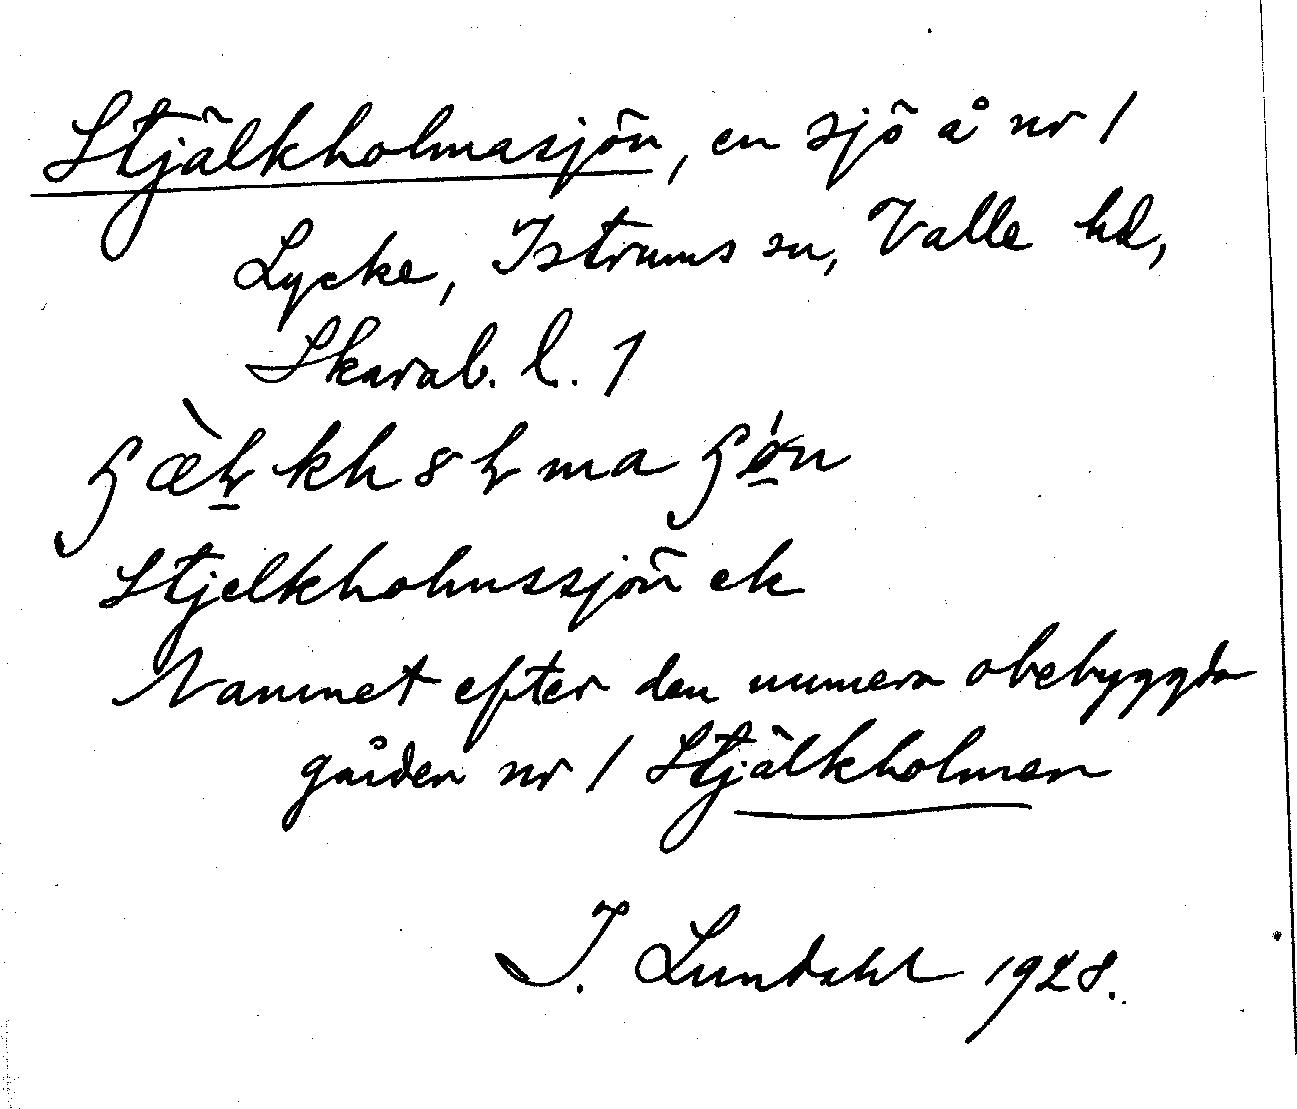 Stjälkholmasjön, en sjö å nr 1
Lycke, Istrums sn, Valle hd,
Skarab. l. 1
Stjelkholmssjön ek
Namnet efter den numera obebyggda
gården nr 1 Stjälkholmen
I. Lundahl 1928.